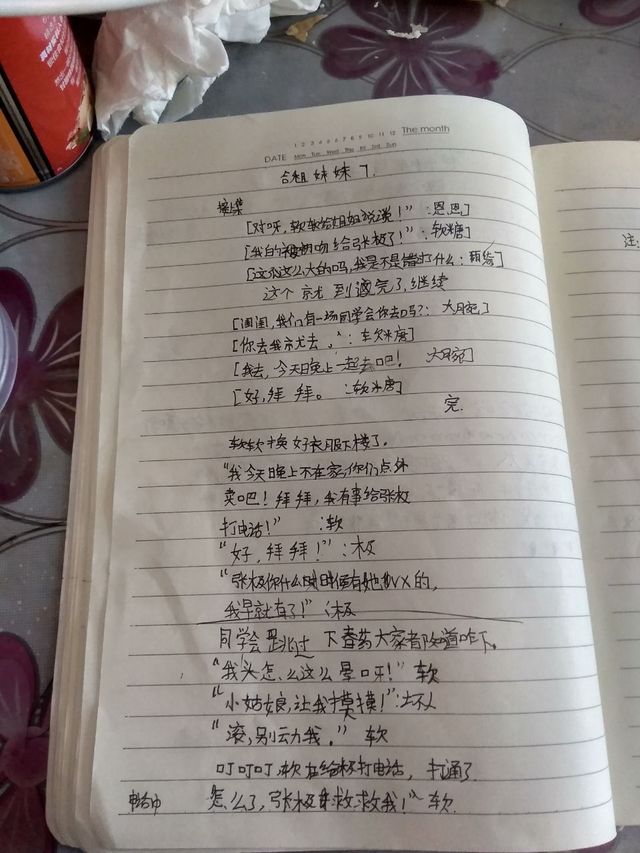 1 2 3 4 5 6 7 8 9 10 11 12 The month
DATE Mon Tue Wed Thu Fri Sat Sun
合租妹妹 7.
接集
[对呀,软软给姐姐说说!”:恩恩]
[我的初吻给张极了!”:软糖]
[这么大的吗,我是不是错过什么:]
这个就到这完了,继续
[圆圆,我们有一场同学会你去吗?:大月宛]
[你去我就去,”:软米唐]
[我去,今天晚上一起去吧! 大月宛]
[好,拜拜。:软米唐]
完.
注:
软软换好衣服下楼了。
“我今天晚上不在家,你们点外
卖吧!拜拜,我有事给张极
打电话!” :软
“好,拜拜!”:极
“张极你什么时候有她VX的,
我早就有了!”:极
同学会跳过 下春药大家都知道咋下。
“我头怎么这么晕呀!”软
“小姑娘,让我摸摸!”:坏人
“滚,别动我。” 软
叮叮叮,软在给极打电话,打通了
怎么了,张极救救我!”软